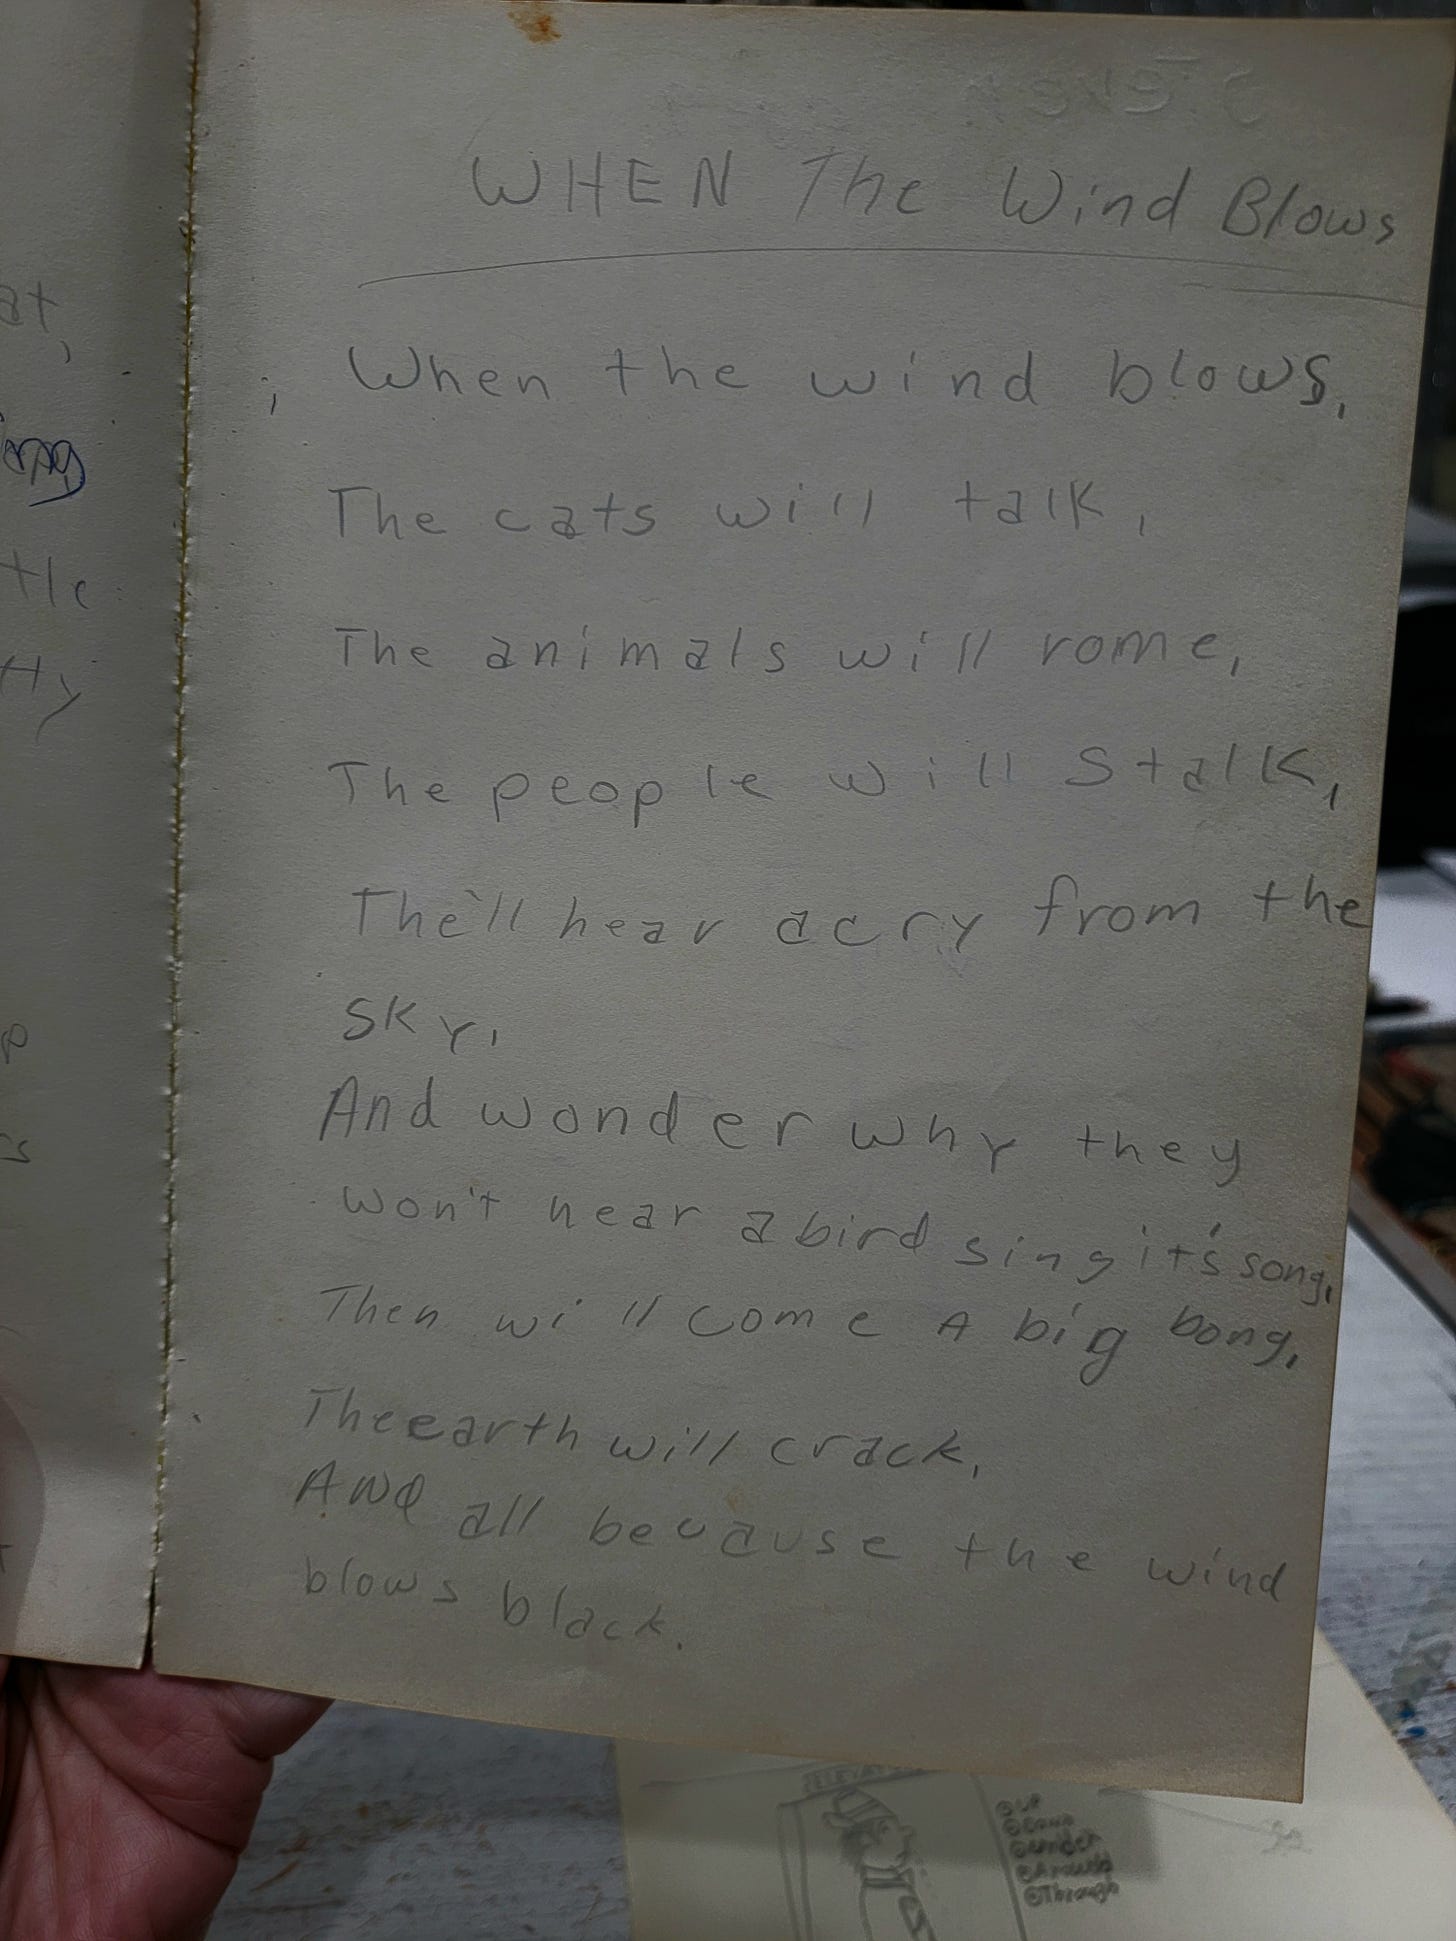 WHEN The Wind Blows
When the wind blows,
The cats will talk,
The animals will rome,
The people will stalk,
The'll hear a cry from the
sky,
And wonder why they
won't hear a bird sing it's song,
Then will come A big bong,
The earth will crack,
AND all because the wind
blows black.
at,
tle
tty
UP
Down
under
Around
Through